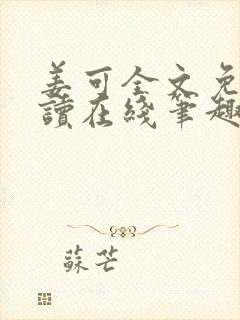 姜可全文免
讀在綫筆趣
蘇芒